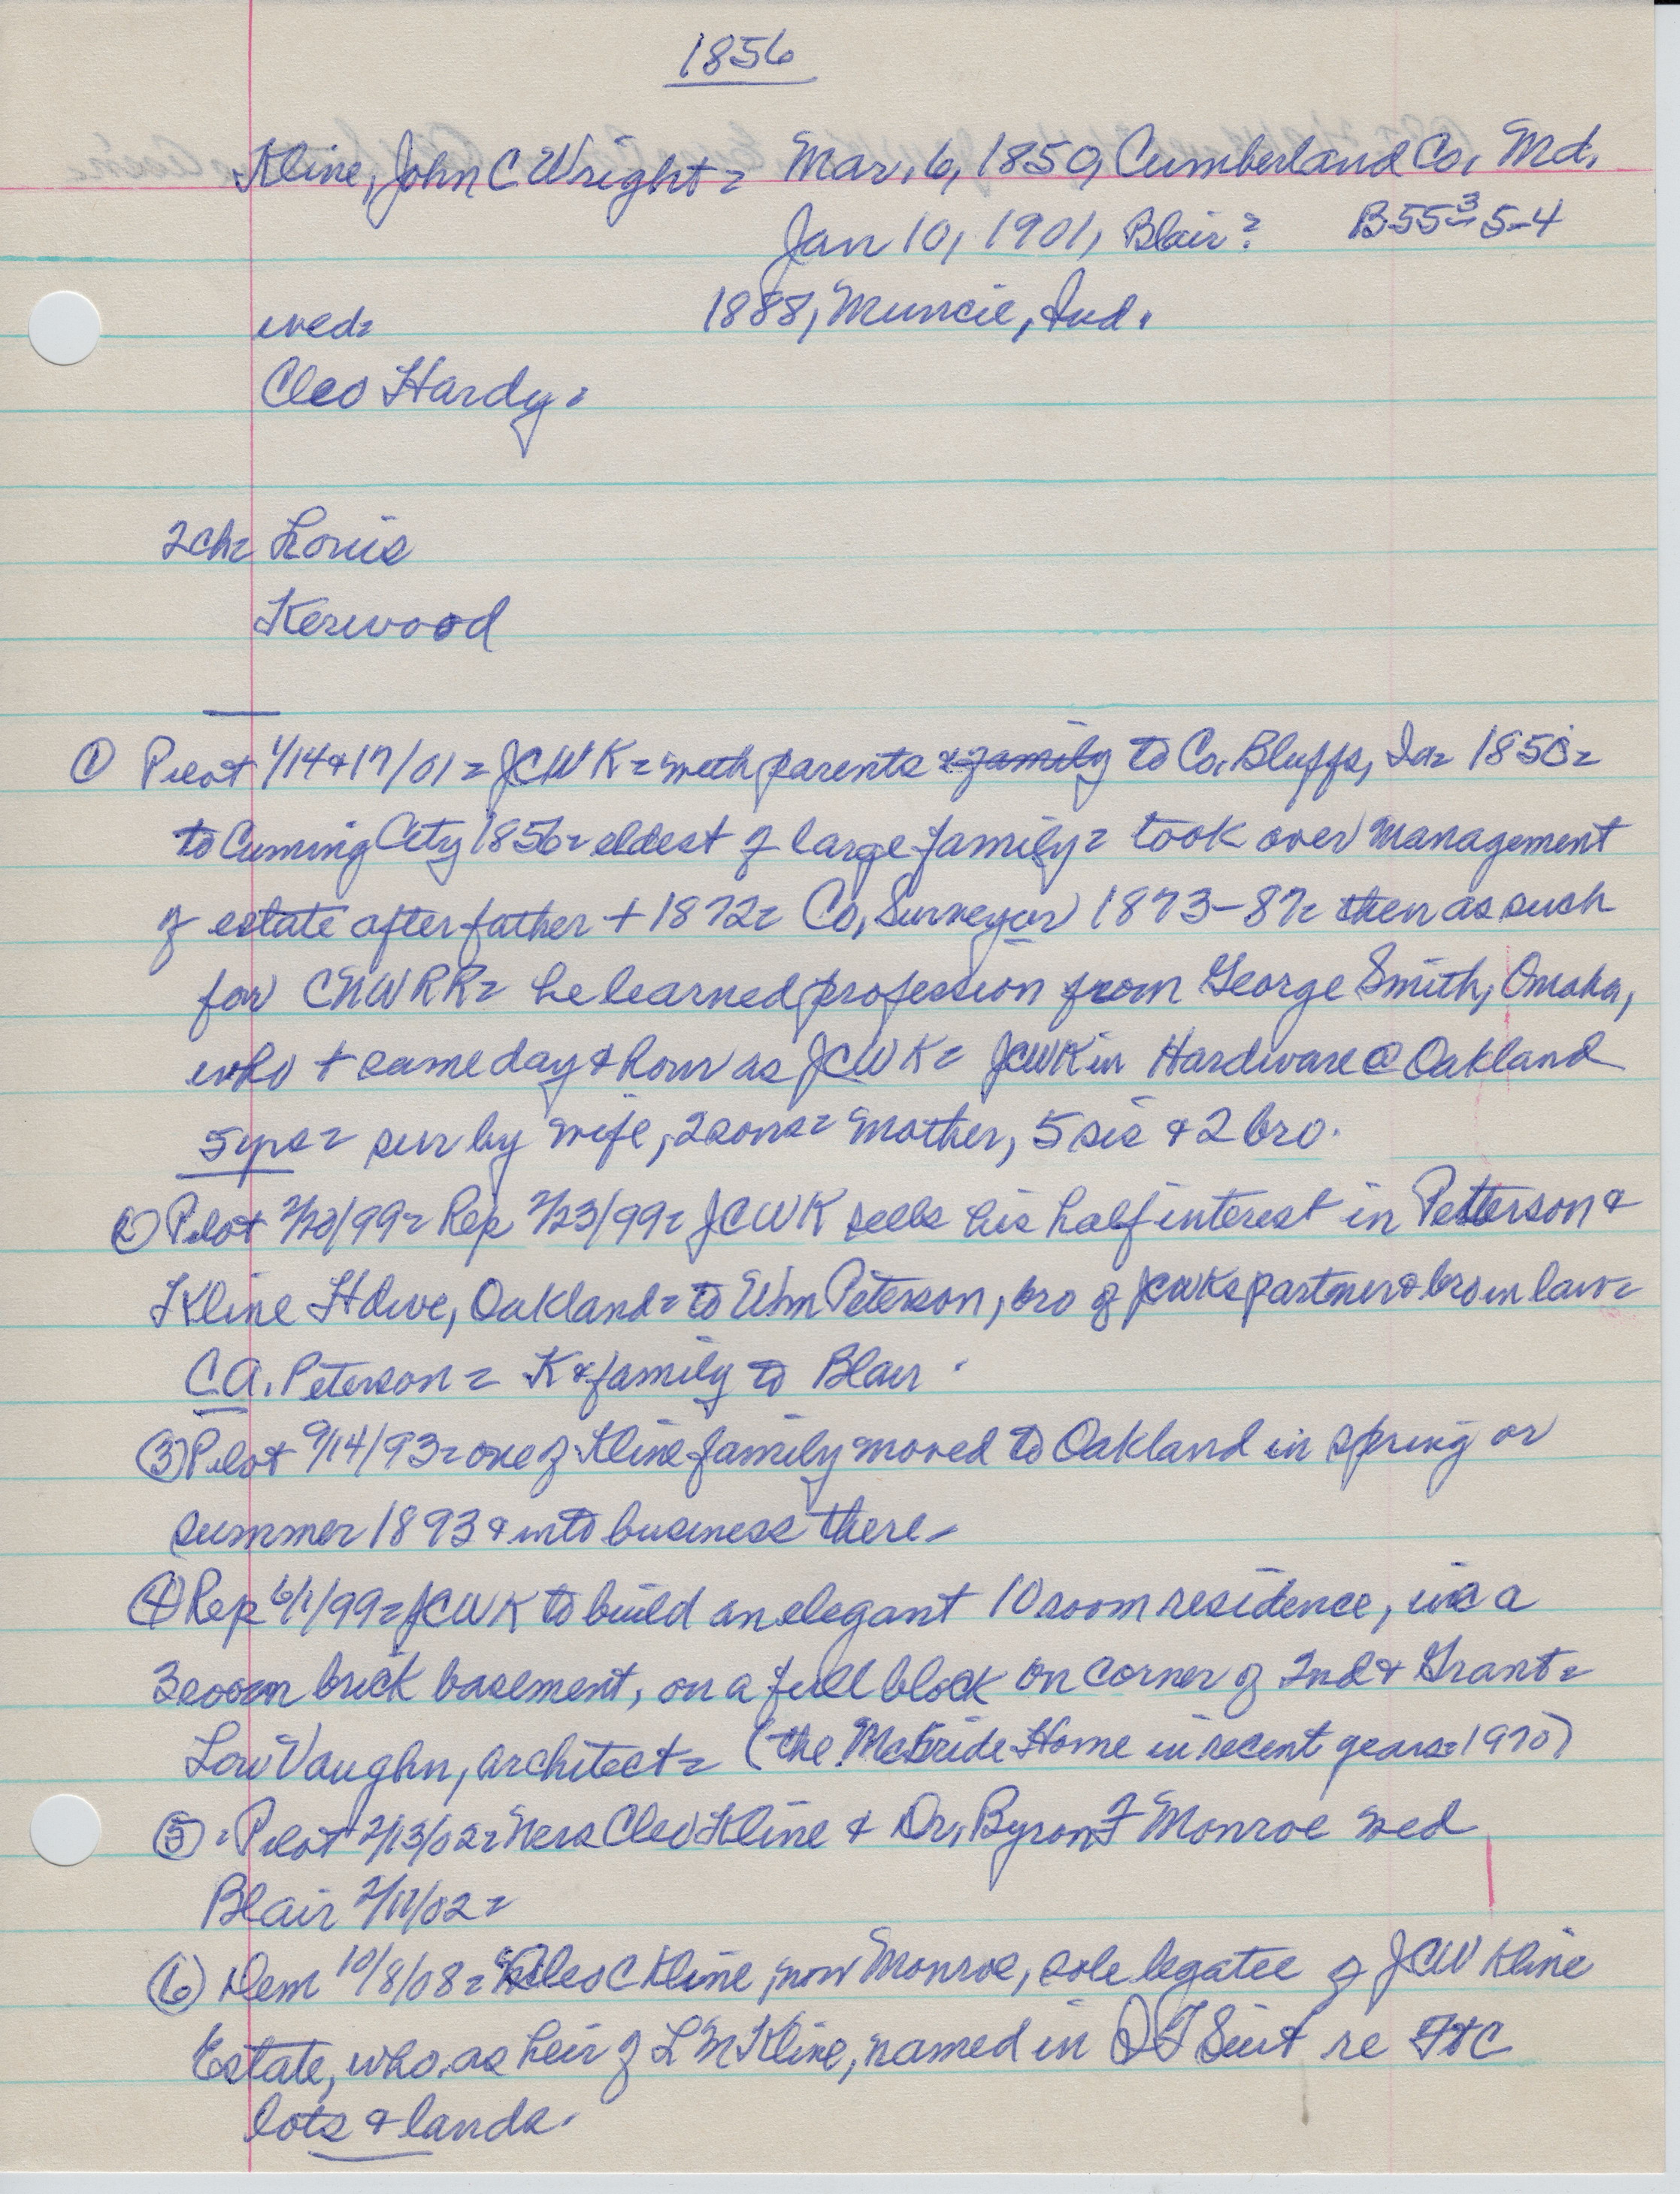 1856
Kline, John C Wright = Mar. 6, 1850, Cumberland Co. Md.
Jan 10, 1901, Blair? B-55-3 5-4
wed= 1888, Muncie, Ind.
Cleo Hardy.
2ch= Louis
Kerwood
① Pilot 1/14&17/01 = JCWK = with parents & family to Co. Bluffs, Ia= 1850=
to Cuming City 1856= eldest of large family= took over management
of estate after father + 1872= Co. Surveyor 1873-87= then as such
for CNWRR= he learned profession from George Smith, Omaha,
who + same day & hour as JCWK= JCWK in Hardware @ Oakland
5yrs= sur by wife, 2 sons= mother, 5 sis & 2 bro.
② Pilot 2/20/99= Rep 2/23/99= JCWK sells his half interest in Petterson &
Kline Hdwe, Oakland= to Wm Peterson, bro of JCWKs partner & bro in law=
C.A. Peterson= K & family to Blair.
③ Pilot 9/14/93= one of Kline family moved to Oakland in spring or
summer 1893 & into business there-
④ Rep 6/1/99= JCWK to build an elegant 10 room residence, inc a
3 room brick basement, on a full block on corner of 2nd & Grant=
Lou Vaughn, architect= (the McBride Home in recent years=1970)
⑤ = Pilot 2/13/02= Mrs Cleo Kline & Dr. Byron F Monroe wed
Blair 2/11/02=
⑥ Dem 10/8/08= Cleo C Kline, now Monroe, sole legatee of JCW Kline
Estate, who, as heir of L M Kline, named in QT Suit re FtC
lots & lands.